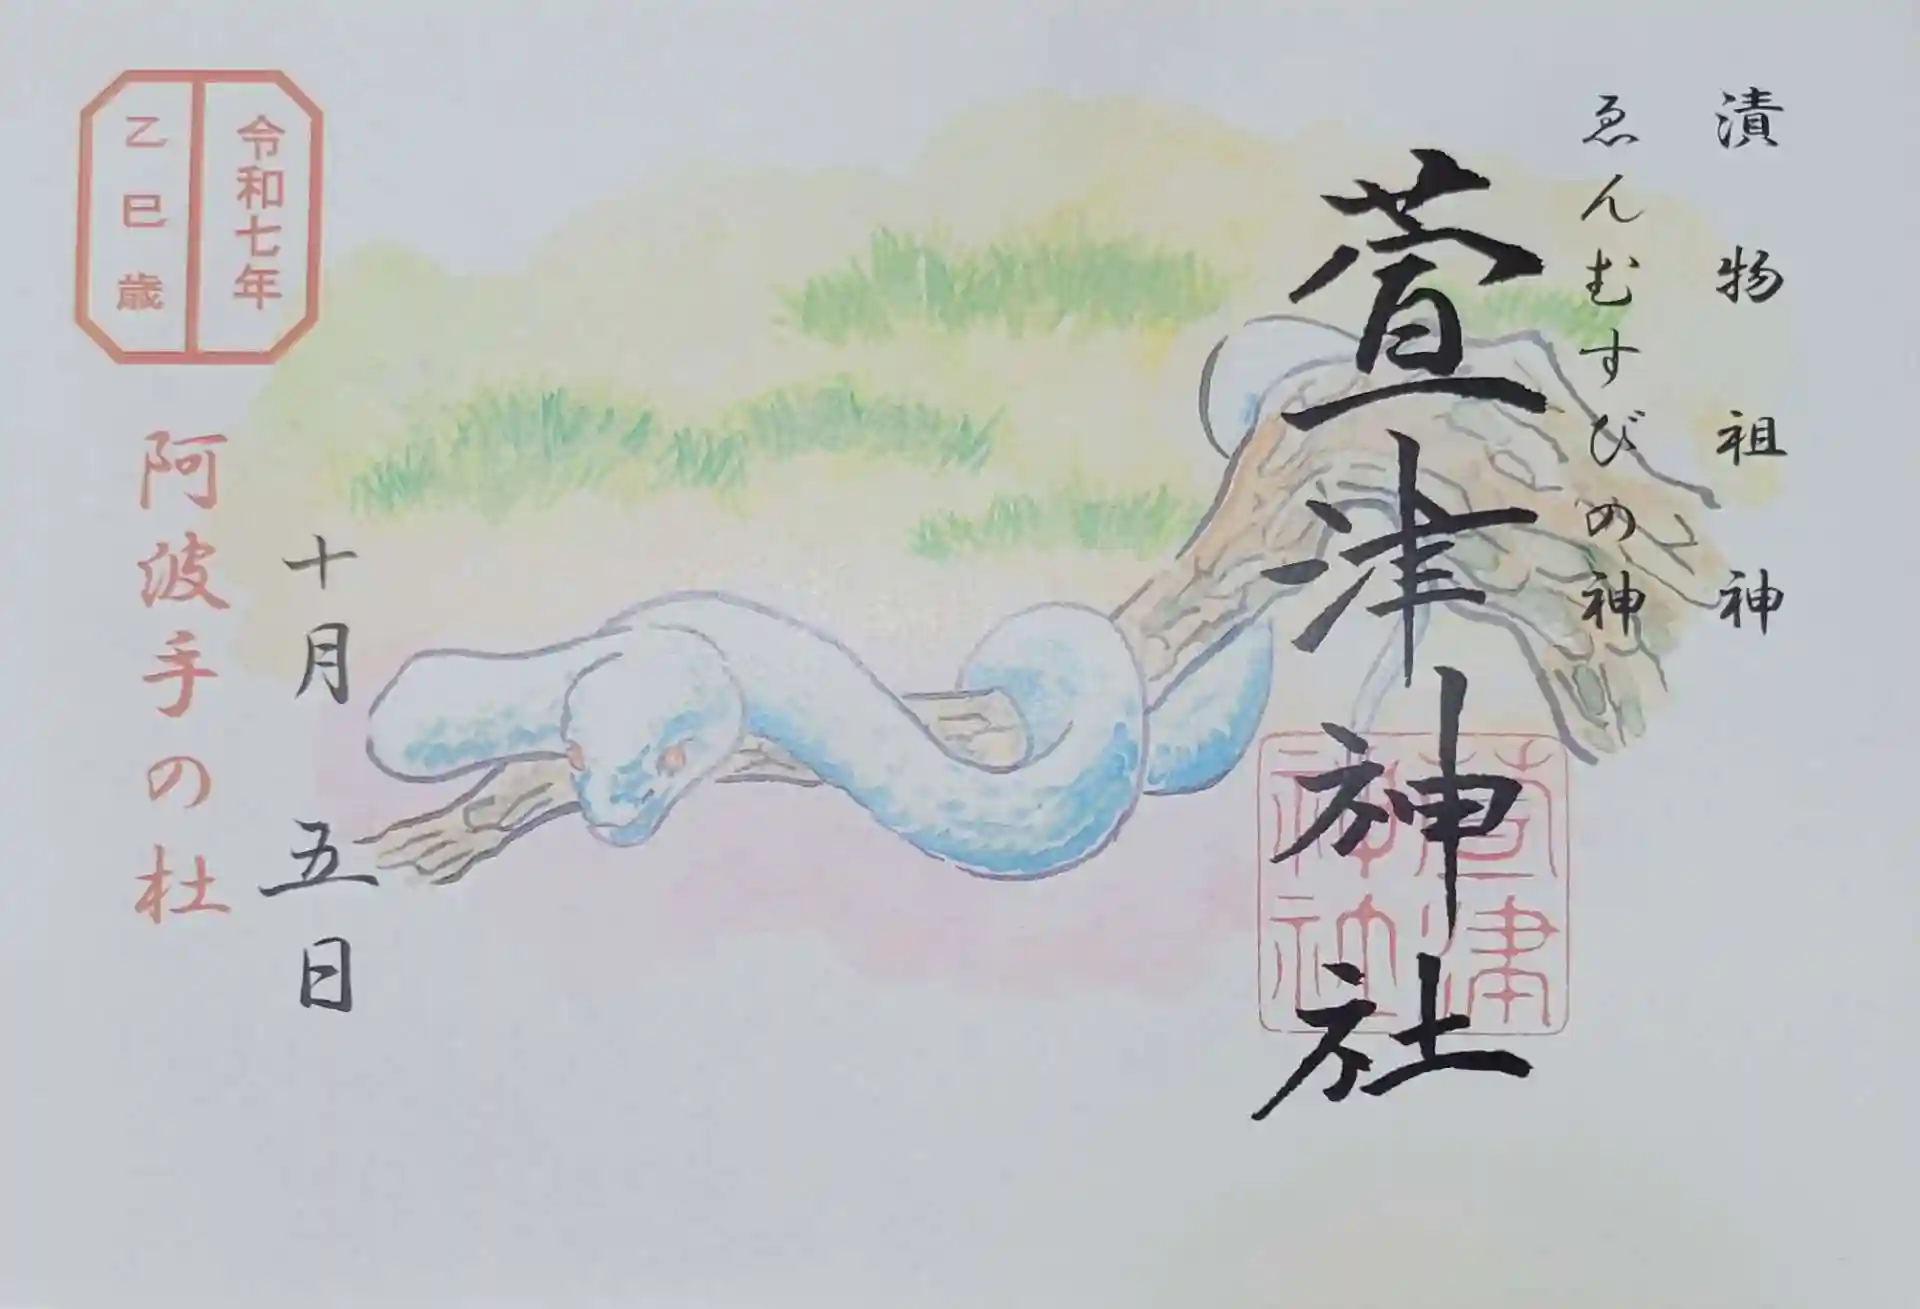 漬物祖神
ゑんむすびの神
萱津神社
萱津神社
十月五日
令和七年
乙巳歳
阿波手の杜